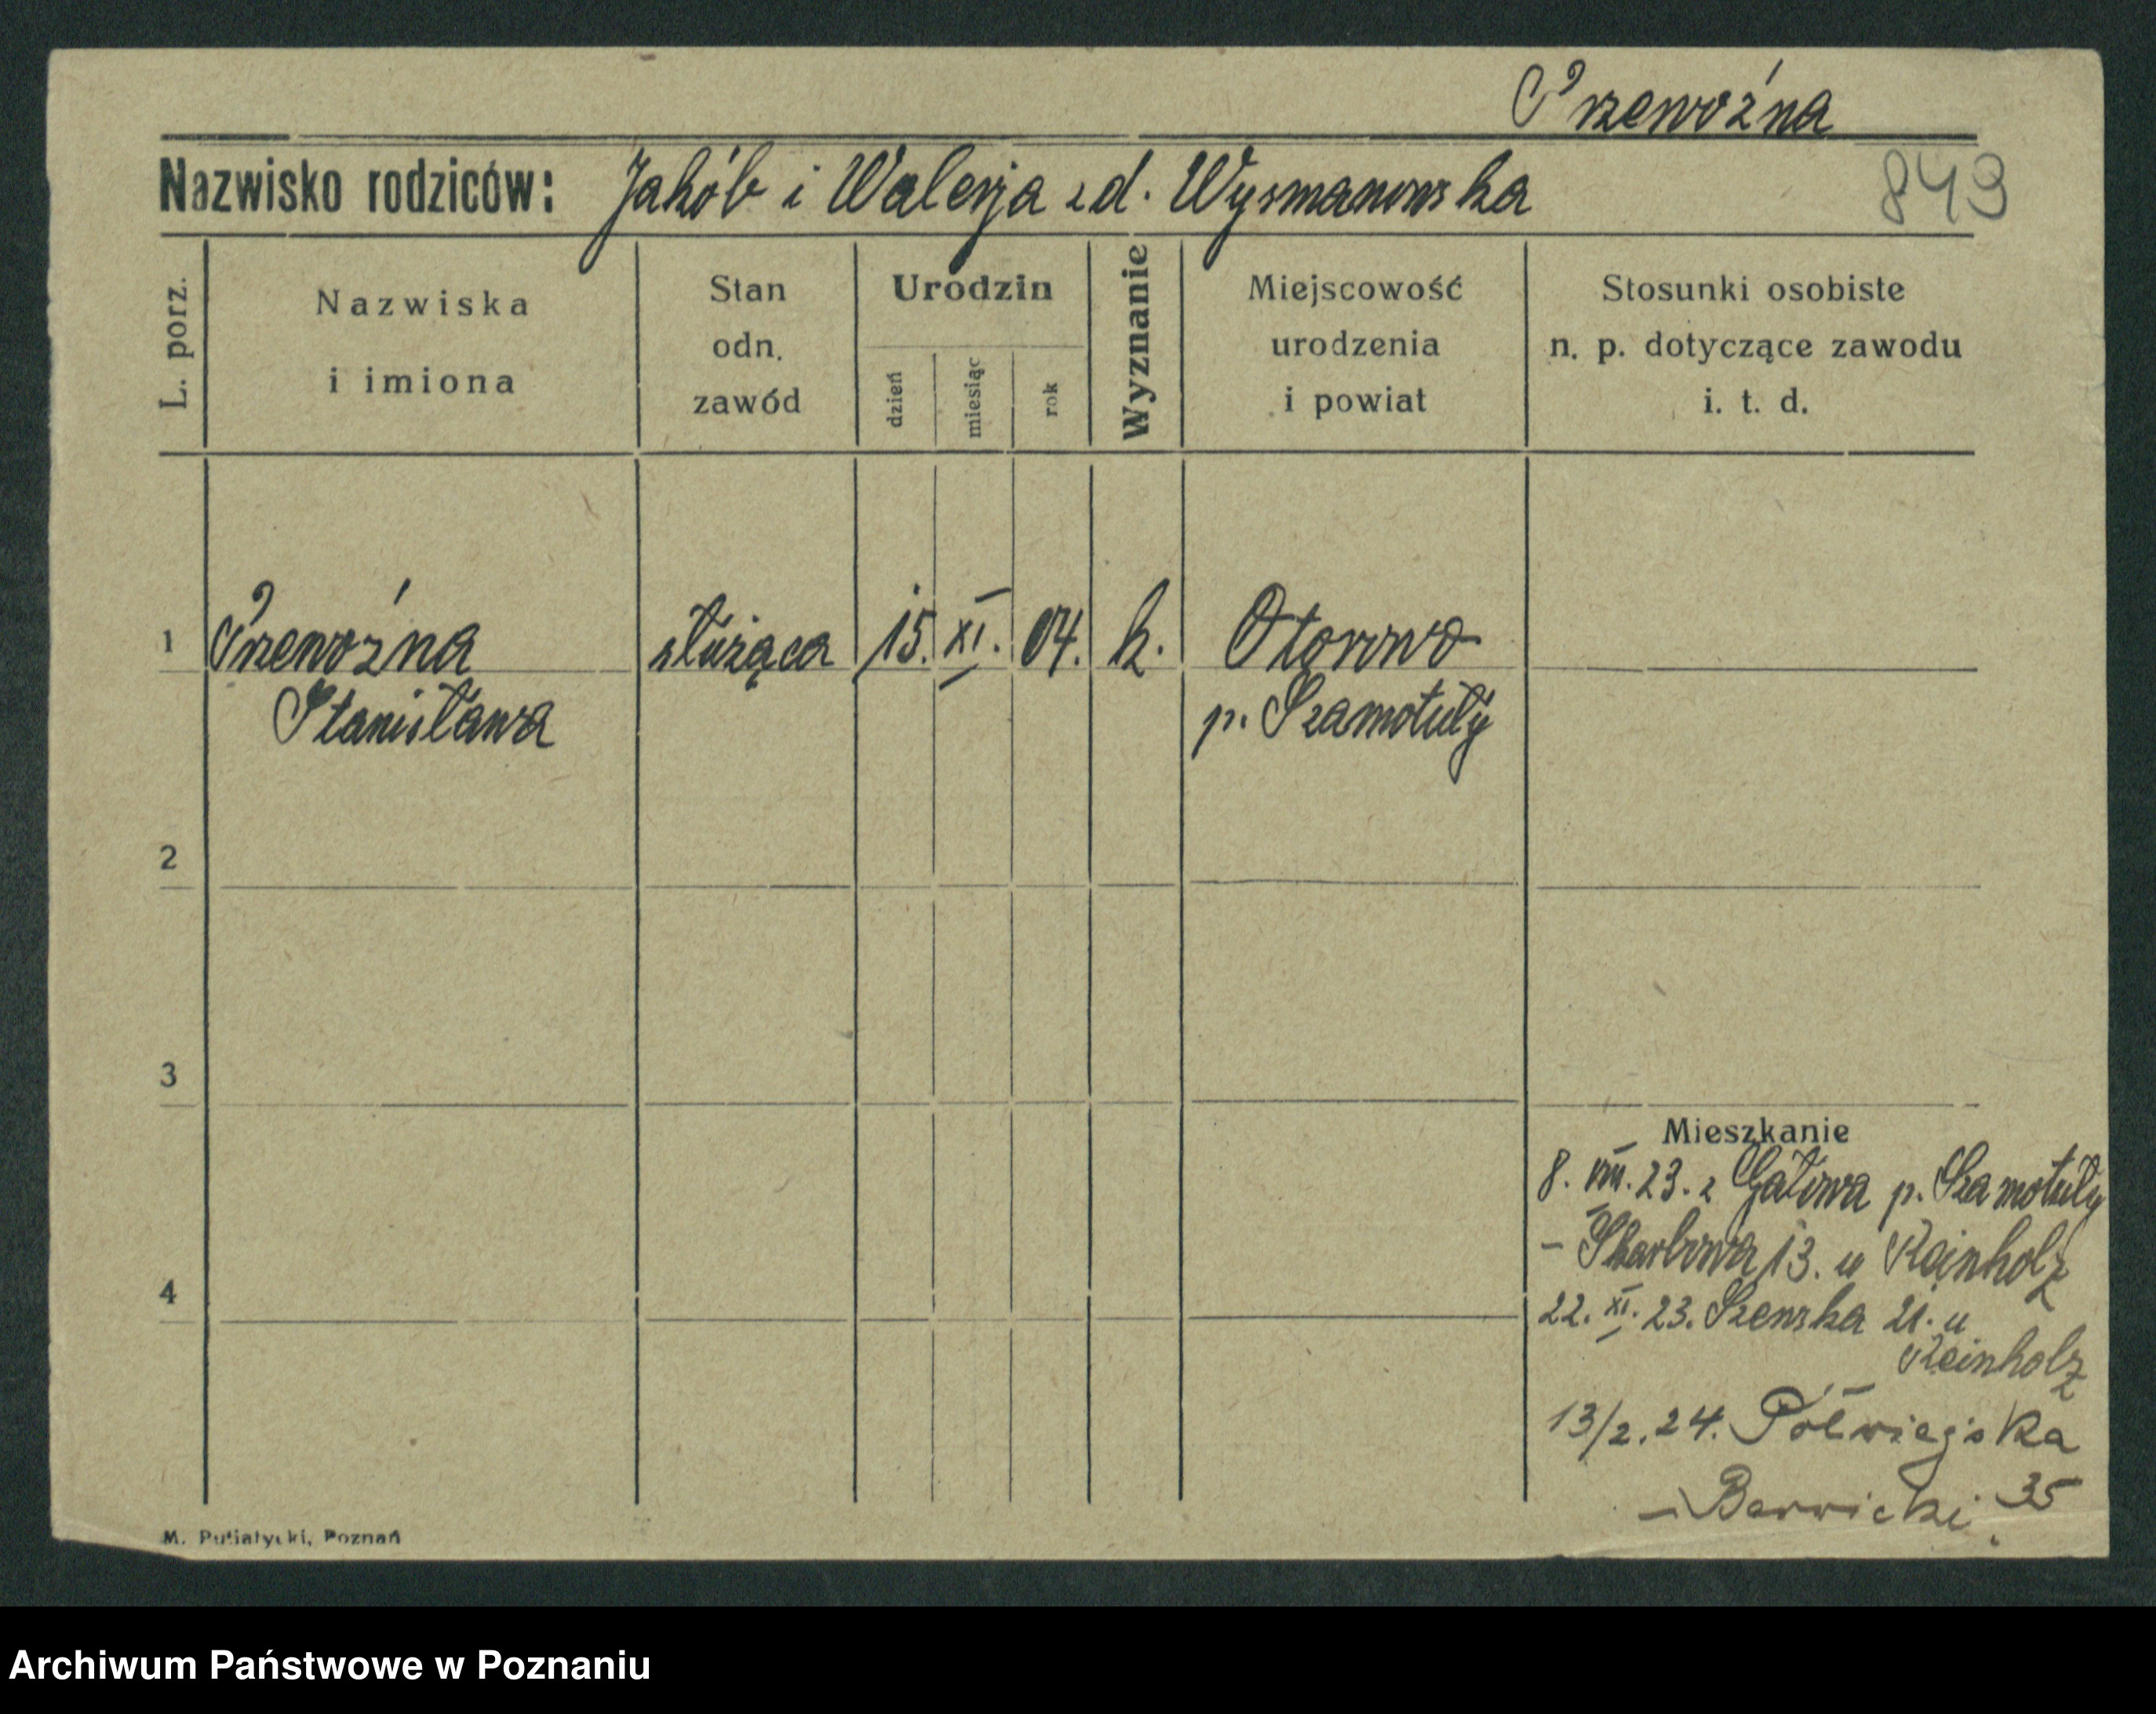 Przewoźna
Nazwisko rodziców: Jakób i Walerja zd. Wysmanowska
849
L. porz.
Nazwiska
i imiona
Stan
odn.
zawód
Urodzin
dzień
miesiąc
rok
Wyznanie
Miejscowość
urodzenia
i powiat
Stosunki osobiste
n. p. dotyczące zawodu
i. t. d.
1 Przewoźna służąca 15. XI. 04. k. Otorowo
Stanisława p. Szamotuły
2
3
4
Mieszkanie
8. VIII. 23. z Gałowa p. Szamotuły
- Skarbowa 13. u Reinholz
22. XI. 23. Szewska 21. u
Reinholz
13/2. 24. Półwiejska
- Barwicki 35
M. Putiatycki, Poznań
Archiwum Państwowe w Poznaniu